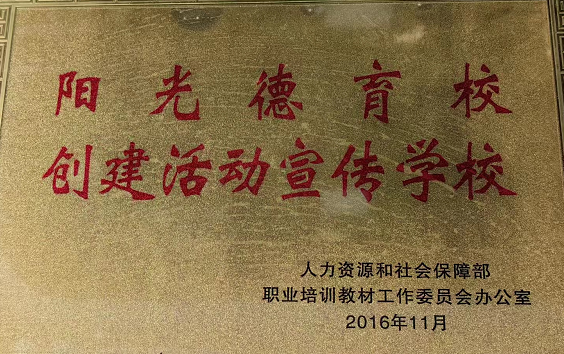 阳光德育校
创建活动宣传学校
人力资源和社会保障部
职业培训教材工作委员会办公室
2016年11月